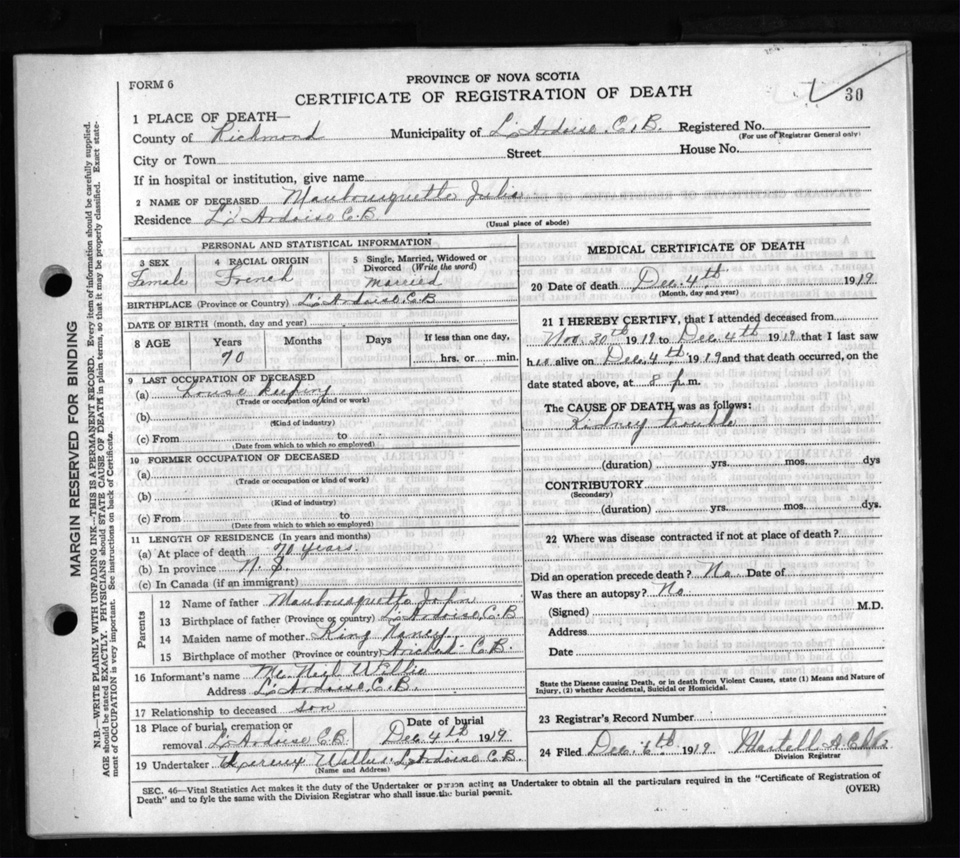 PROVINCE OF NOVA SCOTIA
FORM 6
CERTIFICATE OF REGISTRATION OF DEATH
30
1 PLACE OF DEATH—
County of Richmond Municipality of L'Ardoise, C.B. Registered No.
(For use of Registrar General only)
City or Town Street House No.
If in hospital or institution, give name
2 NAME OF DECEASED Maubousquette Julia
Residence L'Ardoise C.B.
(Usual place of abode)
PERSONAL AND STATISTICAL INFORMATION
3 SEX 4 RACIAL ORIGIN 5 Single, Married, Widowed or Divorced (Write the word)
Female French Married
BIRTHPLACE (Province or Country) L'Ardoise, C.B
DATE OF BIRTH (month, day and year)
8 AGE Years Months Days If less than one day,
70 hrs. or min.
9 LAST OCCUPATION OF DECEASED
(a) House keeping
(Trade or occupation or kind or work)
(b)
(Kind of industry)
(c) From to
(Date from which to which so employed)
10 FORMER OCCUPATION OF DECEASED
(a)
(Trade or occupation or kind of work)
(b)
(Kind of industry)
(c) From to
(Date from which to which so employed)
11 LENGTH OF RESIDENCE (In years and months)
(a) At place of death 70 years.
(b) In province N.S.
(c) In Canada (if an immigrant)
Parents
12 Name of father Maubousquette John
13 Birthplace of father (Province or country) L'Ardoise, C.B
14 Maiden name of mother King Nancy
15 Birthplace of mother (Province or country) Arichat C.B.
16 Informant's name Mc Neil Willie
Address L'Ardoise C.B.
17 Relationship to deceased son
18 Place of burial, cremation or Date of burial
removal L'Ardoise C.B. Dec 4th 1919
19 Undertaker L'Ardoise C.B.
(Name and Address)
MEDICAL CERTIFICATE OF DEATH
20 Date of death Dec. 4th 1919
(Month, day and year)
21 I HEREBY CERTIFY, that I attended deceased from
Nov. 30th 1919 to Dec. 4th 1919 that I last saw
her alive on Dec. 4th 1919 and that death occurred, on the
date stated above, at 8 p.m.
The CAUSE OF DEATH was as follows:
Kidney trouble
(duration) yrs. mos. dys
CONTRIBUTORY
(Secondary)
(duration) yrs. mos. dys.
22 Where was disease contracted if not at place of death?
Did an operation precede death? No Date of
Was there an autopsy? No
(Signed) M.D.
Address
Date
State the Disease causing Death, or in death from Violent Causes, state (1) Means and Nature of
Injury, (2) whether Accidental, Suicidal or Homicidal.
23 Registrar's Record Number
24 Filed Dec. 6th 1919 Martell
Division Registrar
SEC. 46—Vital Statistics Act makes it the duty of the Undertaker or person acting as Undertaker to obtain all the particulars required in the "Certificate of Registration of
Death" and to fyle the same with the Division Registrar who shall issue the burial permit. (OVER)
MARGIN RESERVED FOR BINDING
N.B.—WRITE PLAINLY WITH UNFADING INK—THIS IS A PERMANENT RECORD. Every item of information should be carefully supplied.
AGE should be stated EXACTLY. PHYSICIANS should STATE CAUSE OF DEATH in plain terms, so that it may be properly classified. Exact state-
ment of OCCUPATION is very important. See instructions on back of Certificate.